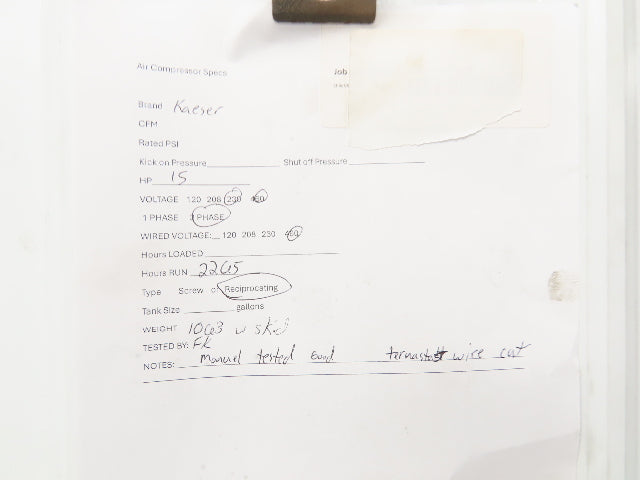 Air Compressor Specs
Job
Brand Kaeser
CFM
Rated PSI
Kick on Pressure Shut off Pressure
HP 15
VOLTAGE 120 208 230 460
1 PHASE 3 PHASE
WIRED VOLTAGE: 120 208 230 460
Hours LOADED
Hours RUN
Type Screw or Reciprocating
Tank Size gallons
WEIGHT w skid
TESTED BY: FK
NOTES: manual tested Good wire cut